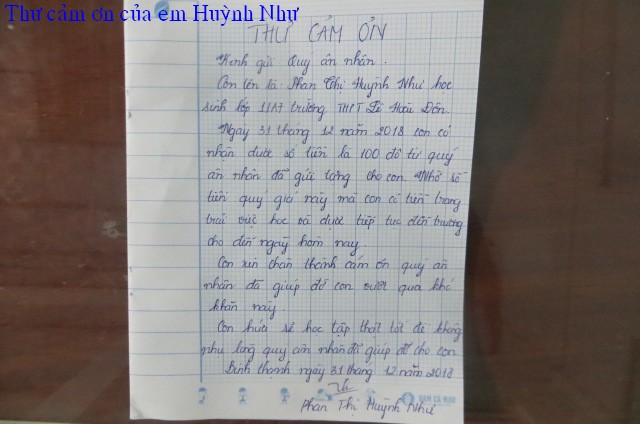 Thư cảm ơn của em Huỳnh Như
THƯ CẢM ƠN
Kính gửi Quý ân nhân.
Con tên là: Phan Thị Huỳnh Như học
sinh lớp 11A7 trường THPT Lê Hoài Đôn.
Ngày 31 tháng 12 năm 2018 con có
nhận được số tiền là 100 đô từ quý
ân nhân đã gửi tặng cho con. Nhờ số
tiền quý giá này mà con có tiền trang
trải việc học và được tiếp tục đến trường
cho đến ngày hôm nay.
Con xin chân thành cám ơn quý ân
nhân đã giúp đỡ con vượt qua khó
khăn này.
Con hứa sẽ học tập thật tốt để không
phụ lòng quý ân nhân đã giúp đỡ cho con
Bình thạnh ngày 31 tháng 12 năm 2018
Phan Thị Huỳnh Như